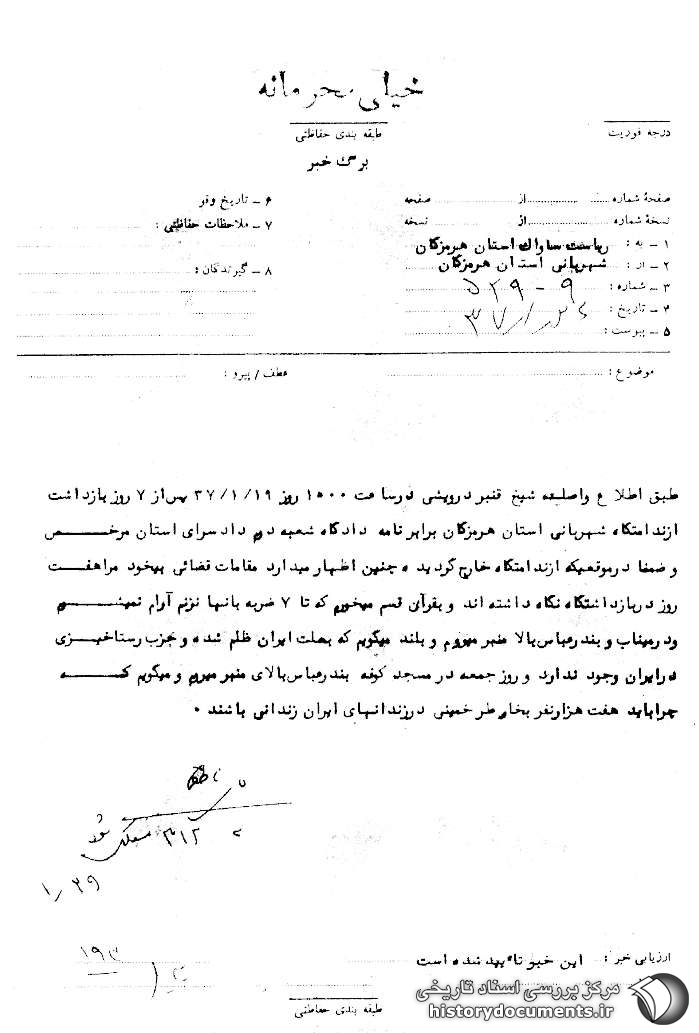 خیلی محرمانه
طبقه بندی حفاظتی
درجه فوریت
برگ خبر
صفحهٔ شماره ........ از ........ صفحه
نسخهٔ شماره ........ از ........ نسخه
۱ ـ به : ریاست ساواک استان هرمزگان
۲ ـ از : شهربانی استان هرمزگان
۳ ـ شماره : ۹ - ۵۲۹
۴ ـ تاریخ :
۵ ـ پیوست :
۶ ـ تاریخ وقو
۷ ـ ملاحظات حفاظتی :
۸ ـ گیرندگان :
موضوع :
عطف / پیرو :
طبق اطلاع واصله شیخ قنبر درویشی در ساعت ۱۵۰۰ روز ۳۷/۱/۱۹ پس از ۷ روز بازداشت
از ندامتگاه شهربانی استان هرمزگان برابر نامه دادگاه شعبه دوم دادسرای استان مرخص
و ضمنا درموقعیکه از ندامتگاه خارج گردید ه چنین اظهار میدارد مقامات قضائی بیخود مرا هفت
روز در بازداشتگاه نگاه داشته اند و بقرآن قسم میخورم که تا ۷ ضربه بانها نزنم آرام نمیشم
ودرمیناب و بندرعباس بالا منبر میروم و بلند میگویم که بملت ایران ظلم شده و حزب رستاخیزی
در ایران وجود ندارد و روز جمعه در مسجد کوفه بندرعباس بالای منبر میروم و میگویم که
چرا باید هفت هزار نفر بخاطر خمینی در زندانهای ایران زندانی باشند .
۳۱۲
شود
۱٫۲۹
۱۹۳
ارزیابی خبر : این خبر تایید شده است
طبقه بندی حفاظتی
مرکز بررسی اسناد تاریخی
historydocuments.ir